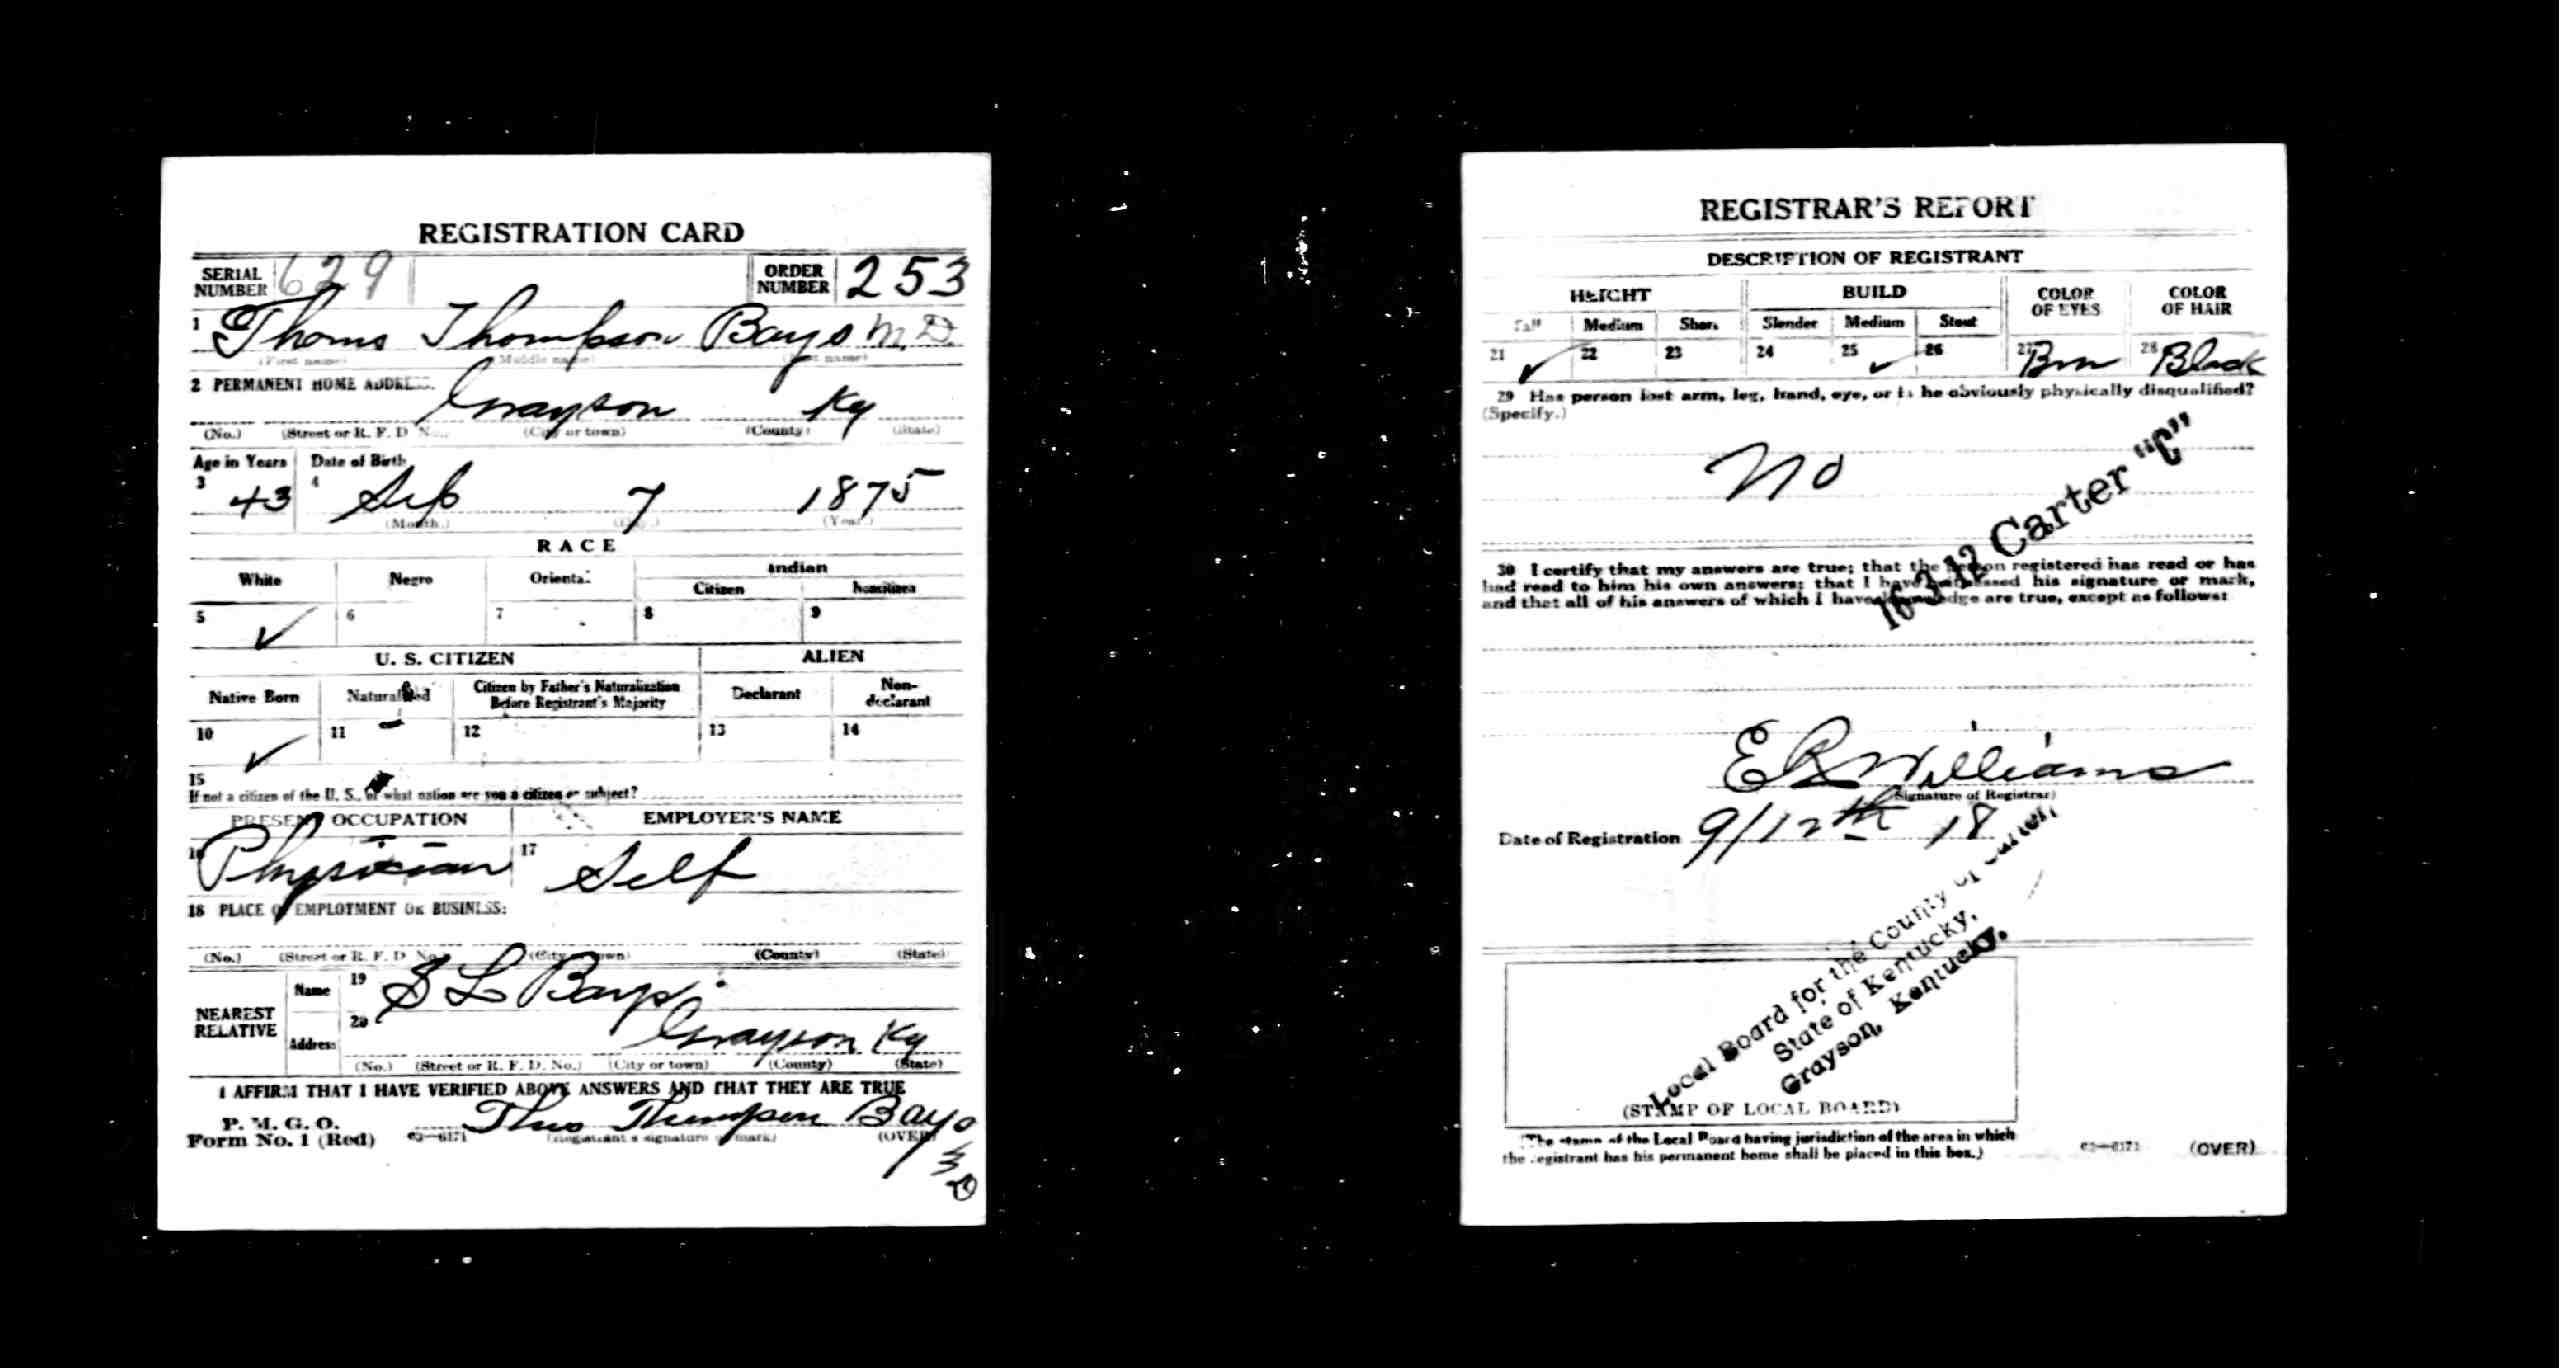 REGISTRATION CARD
SERIAL NUMBER 629 ORDER NUMBER 253
1 Thoms Thompson Bays M.D.
(First name) (Middle name) (Last name)
2 PERMANENT HOME ADDRESS.
Grayson Ky
(No.) (Street or R. F. D No.) (City or town) (County) (State)
Age in Years Date of Birth
3 43 4 Sep 7 1875
(Month.) (Day.) (Year.)
RACE
White Negro Oriental Indian
Citizen Noncitizen
5 ✓ 6 7 8 9
U. S. CITIZEN ALIEN
Native Born Naturalized Citizen by Father's Naturalization Before Registrant's Majority Declarant Non-declarant
10 ✓ 11 12 13 14
15
If not a citizen of the U. S., of what nation are you a citizen or subject?
PRESENT OCCUPATION EMPLOYER'S NAME
16 Physician 17 Self
18 PLACE OF EMPLOYMENT OR BUSINESS:
(No.) (Street or R. F. D No.) (City or town) (County) (State)
NEAREST RELATIVE
Name 19 S L Bays
Address 20 Grayson Ky
(No.) (Street or R. F. D. No.) (City or town) (County) (State)
I AFFIRM THAT I HAVE VERIFIED ABOVE ANSWERS AND THAT THEY ARE TRUE
P. M. G. O.
Form No. 1 (Red) 03—6171 Thos Thompson Bays
(Registrant's signature or mark) (OVER)
REGISTRAR'S REPORT
DESCRIPTION OF REGISTRANT
HEIGHT BUILD COLOR OF EYES COLOR OF HAIR
Tall Medium Short Slender Medium Stout
21 ✓ 22 23 24 25 ✓ 26 27 Brn 28 Black
29 Has person lost arm, leg, hand, eye, or is he obviously physically disqualified?
(Specify.)
No
16-3-12 Carter "C"
30 I certify that my answers are true; that the person registered has read or has
had read to him his own answers; that I have witnessed his signature or mark,
and that all of his answers of which I have knowledge are true, except as follows:
E R Williams
(Signature of Registrar)
Date of Registration 9/12th 18
Local Board for the County of Carter,
State of Kentucky,
Grayson, Kentucky.
(STAMP OF LOCAL BOARD)
(The stamp of the Local Board having jurisdiction of the area in which
the registrant has his permanent home shall be placed in this box.)
03—6171 (OVER)